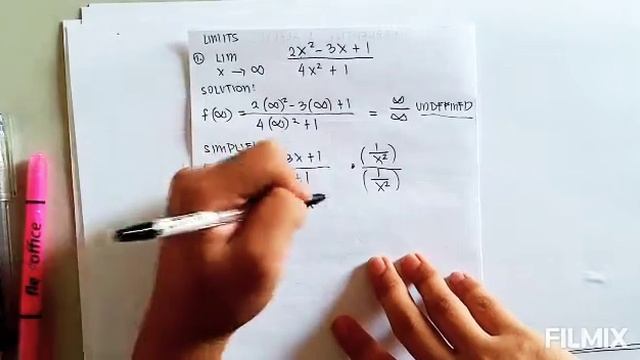 LIMITS
1. LIM x → ∞ 2x² - 3x + 1 / 4x² + 1
SOLUTION:
f(∞) = 2(∞)² - 3(∞) + 1 / 4(∞)² + 1 = ∞/∞ UNDEFINED
3x + 1 / + 1 · (1/x²) / (1/x²)
flex office
FILMIX